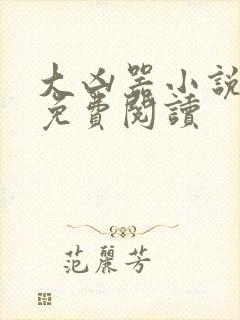 大凶器小說
免費閱讀
范麗芳